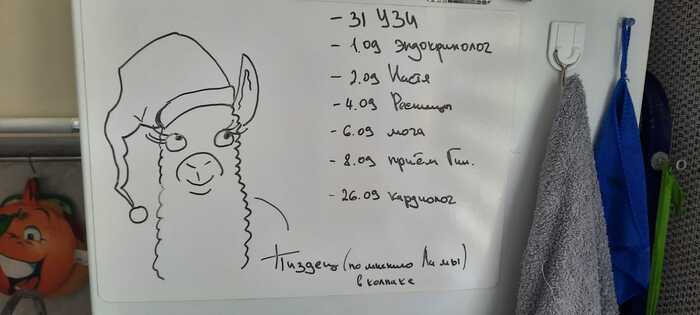 - 31 УЗИ
- 1.09 Эндокринолог
- 2.09 Настя
- 4.09 Ресницы
- 6.09 мога
- 8.09 приём Гин.
- 26.09 кардиолог
Пиздец (помимимо Ламы)
в колпаке